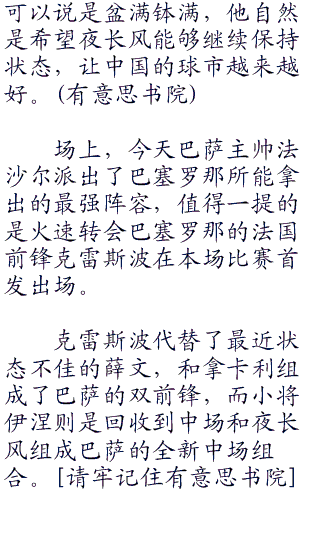 可以说是盆满钵满，他自然
是希望夜长风能够继续保持
状态，让中国的球市越来越
好。(有意思书院)
场上，今天巴萨主帅法
沙尔派出了巴塞罗那所能拿
出的最强阵容，值得一提的
是火速转会巴塞罗那的法国
前锋克雷斯波在本场比赛首
发出场。
克雷斯波代替了最近状
态不佳的薛文，和拿卡利组
成了巴萨的双前锋，而小将
伊涅则是回收到中场和夜长
风组成巴萨的全新中场组
合。[请牢记住有意思书院]